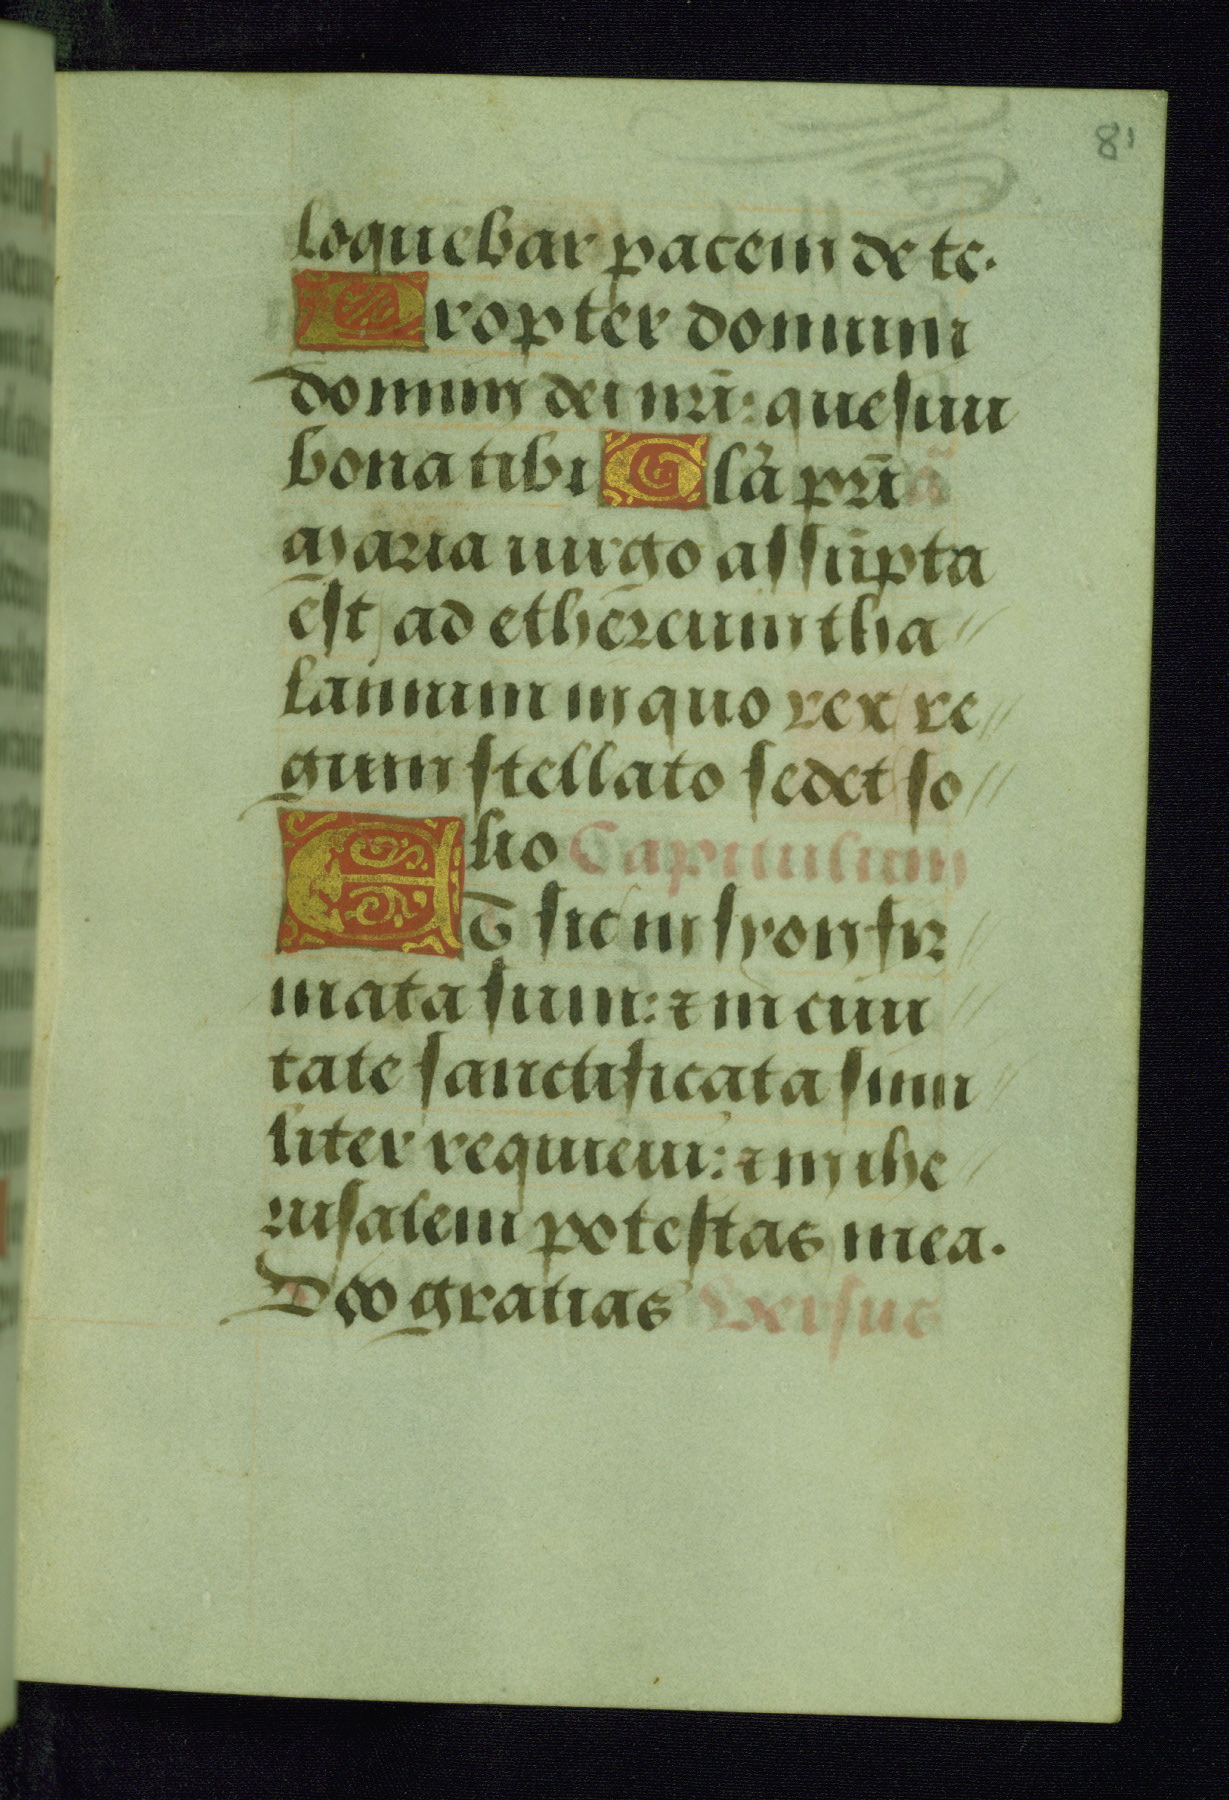 81
loquebar pacem de te.
Propter domum
domum dei nr̄i: quesiui
bona tibi Glā pr̄i ā
Maria uirgo assūpta
est ad ethereum tha//
lamum in quo rex re//
gum stellato sedet so//
lio Capitulum
ET sic in syon fir
mata sum: ⁊ in ciui
tate sanctificata simi
liter requieui: ⁊ in ihe
rusalem potestas mea.
Deo gratias Versus